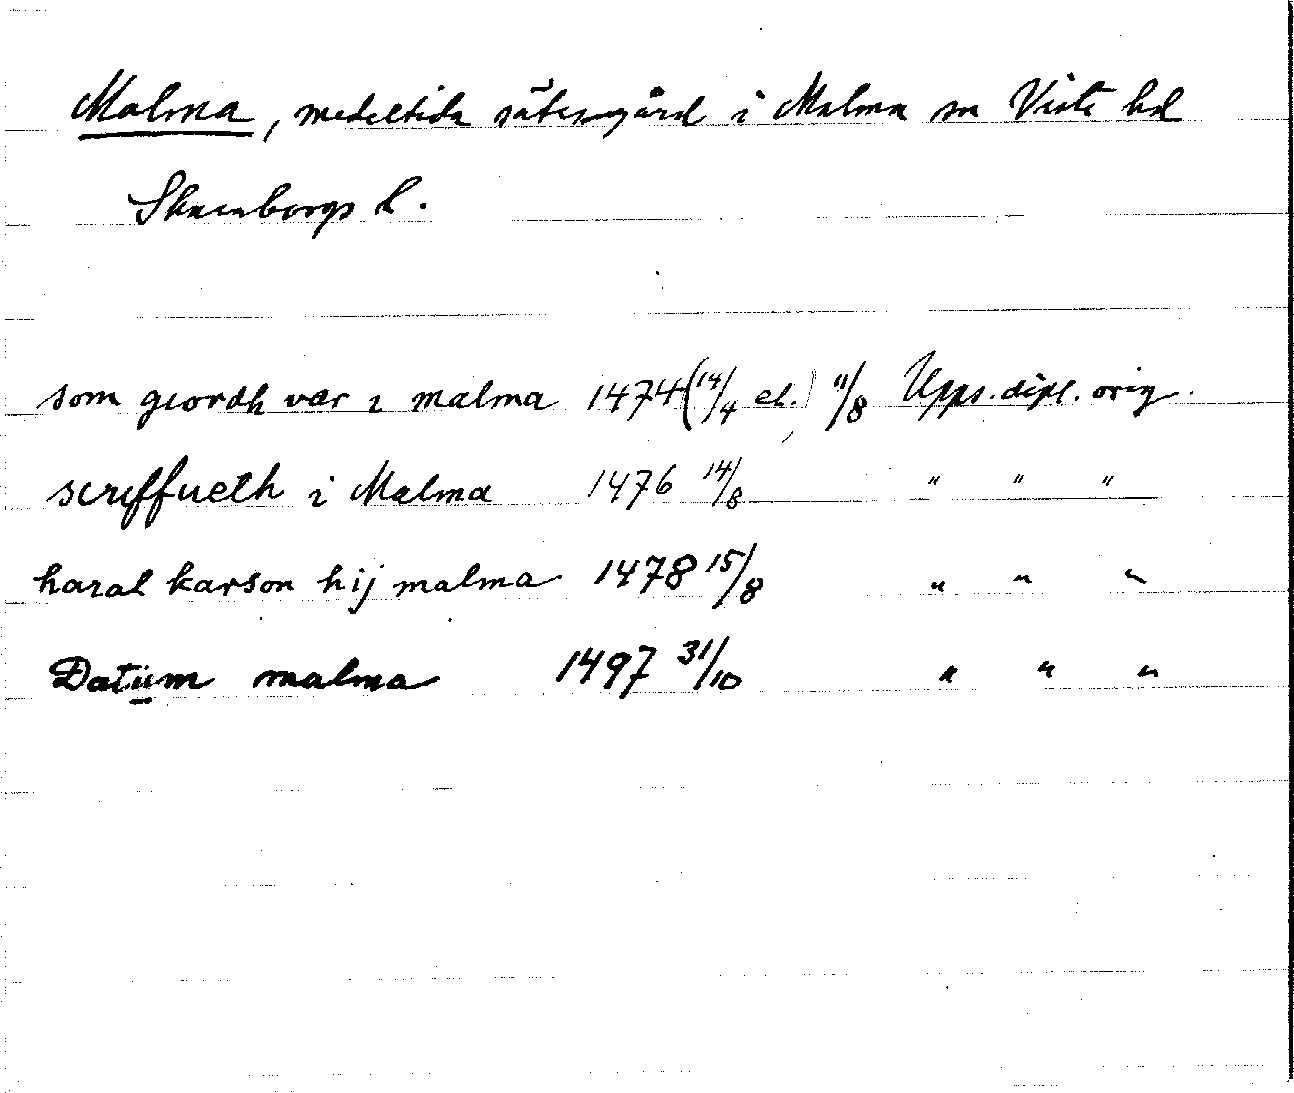 Malma, medeltida sätesgård i Malma sn Viste hd
Skaraborgs l.
som giordh var i malma 1474 (14/4 el.) 11/8 Upps. dipl. orig.
scriffueth i Malma 1476 14/8 " " "
haral karson hij malma 1478 15/8 " " "
Datum malma 1497 31/10 " " "